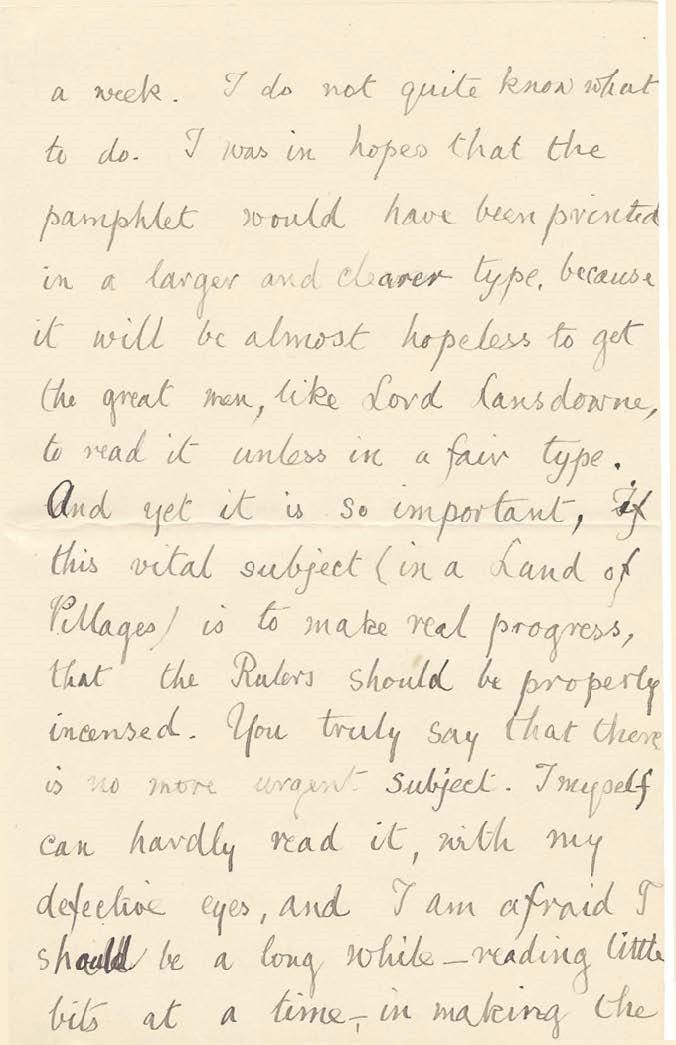 a week. I do not quite know what
to do. I was in hopes that the
pamphlet would have been printed
in a larger and clearer type, because
it will be almost hopeless to get
the great men, like Lord Lansdowne,
to read it unless in a fair type.
And yet it is so important, if
this vital subject (in a Land of
Villages) is to make real progress,
that the Rulers should be properly
incensed. You truly say that there
is no more urgent subject. I myself
can hardly read it, with my
defective eyes, and I am afraid I
should be a long while – reading little
bits at a time –, in making the